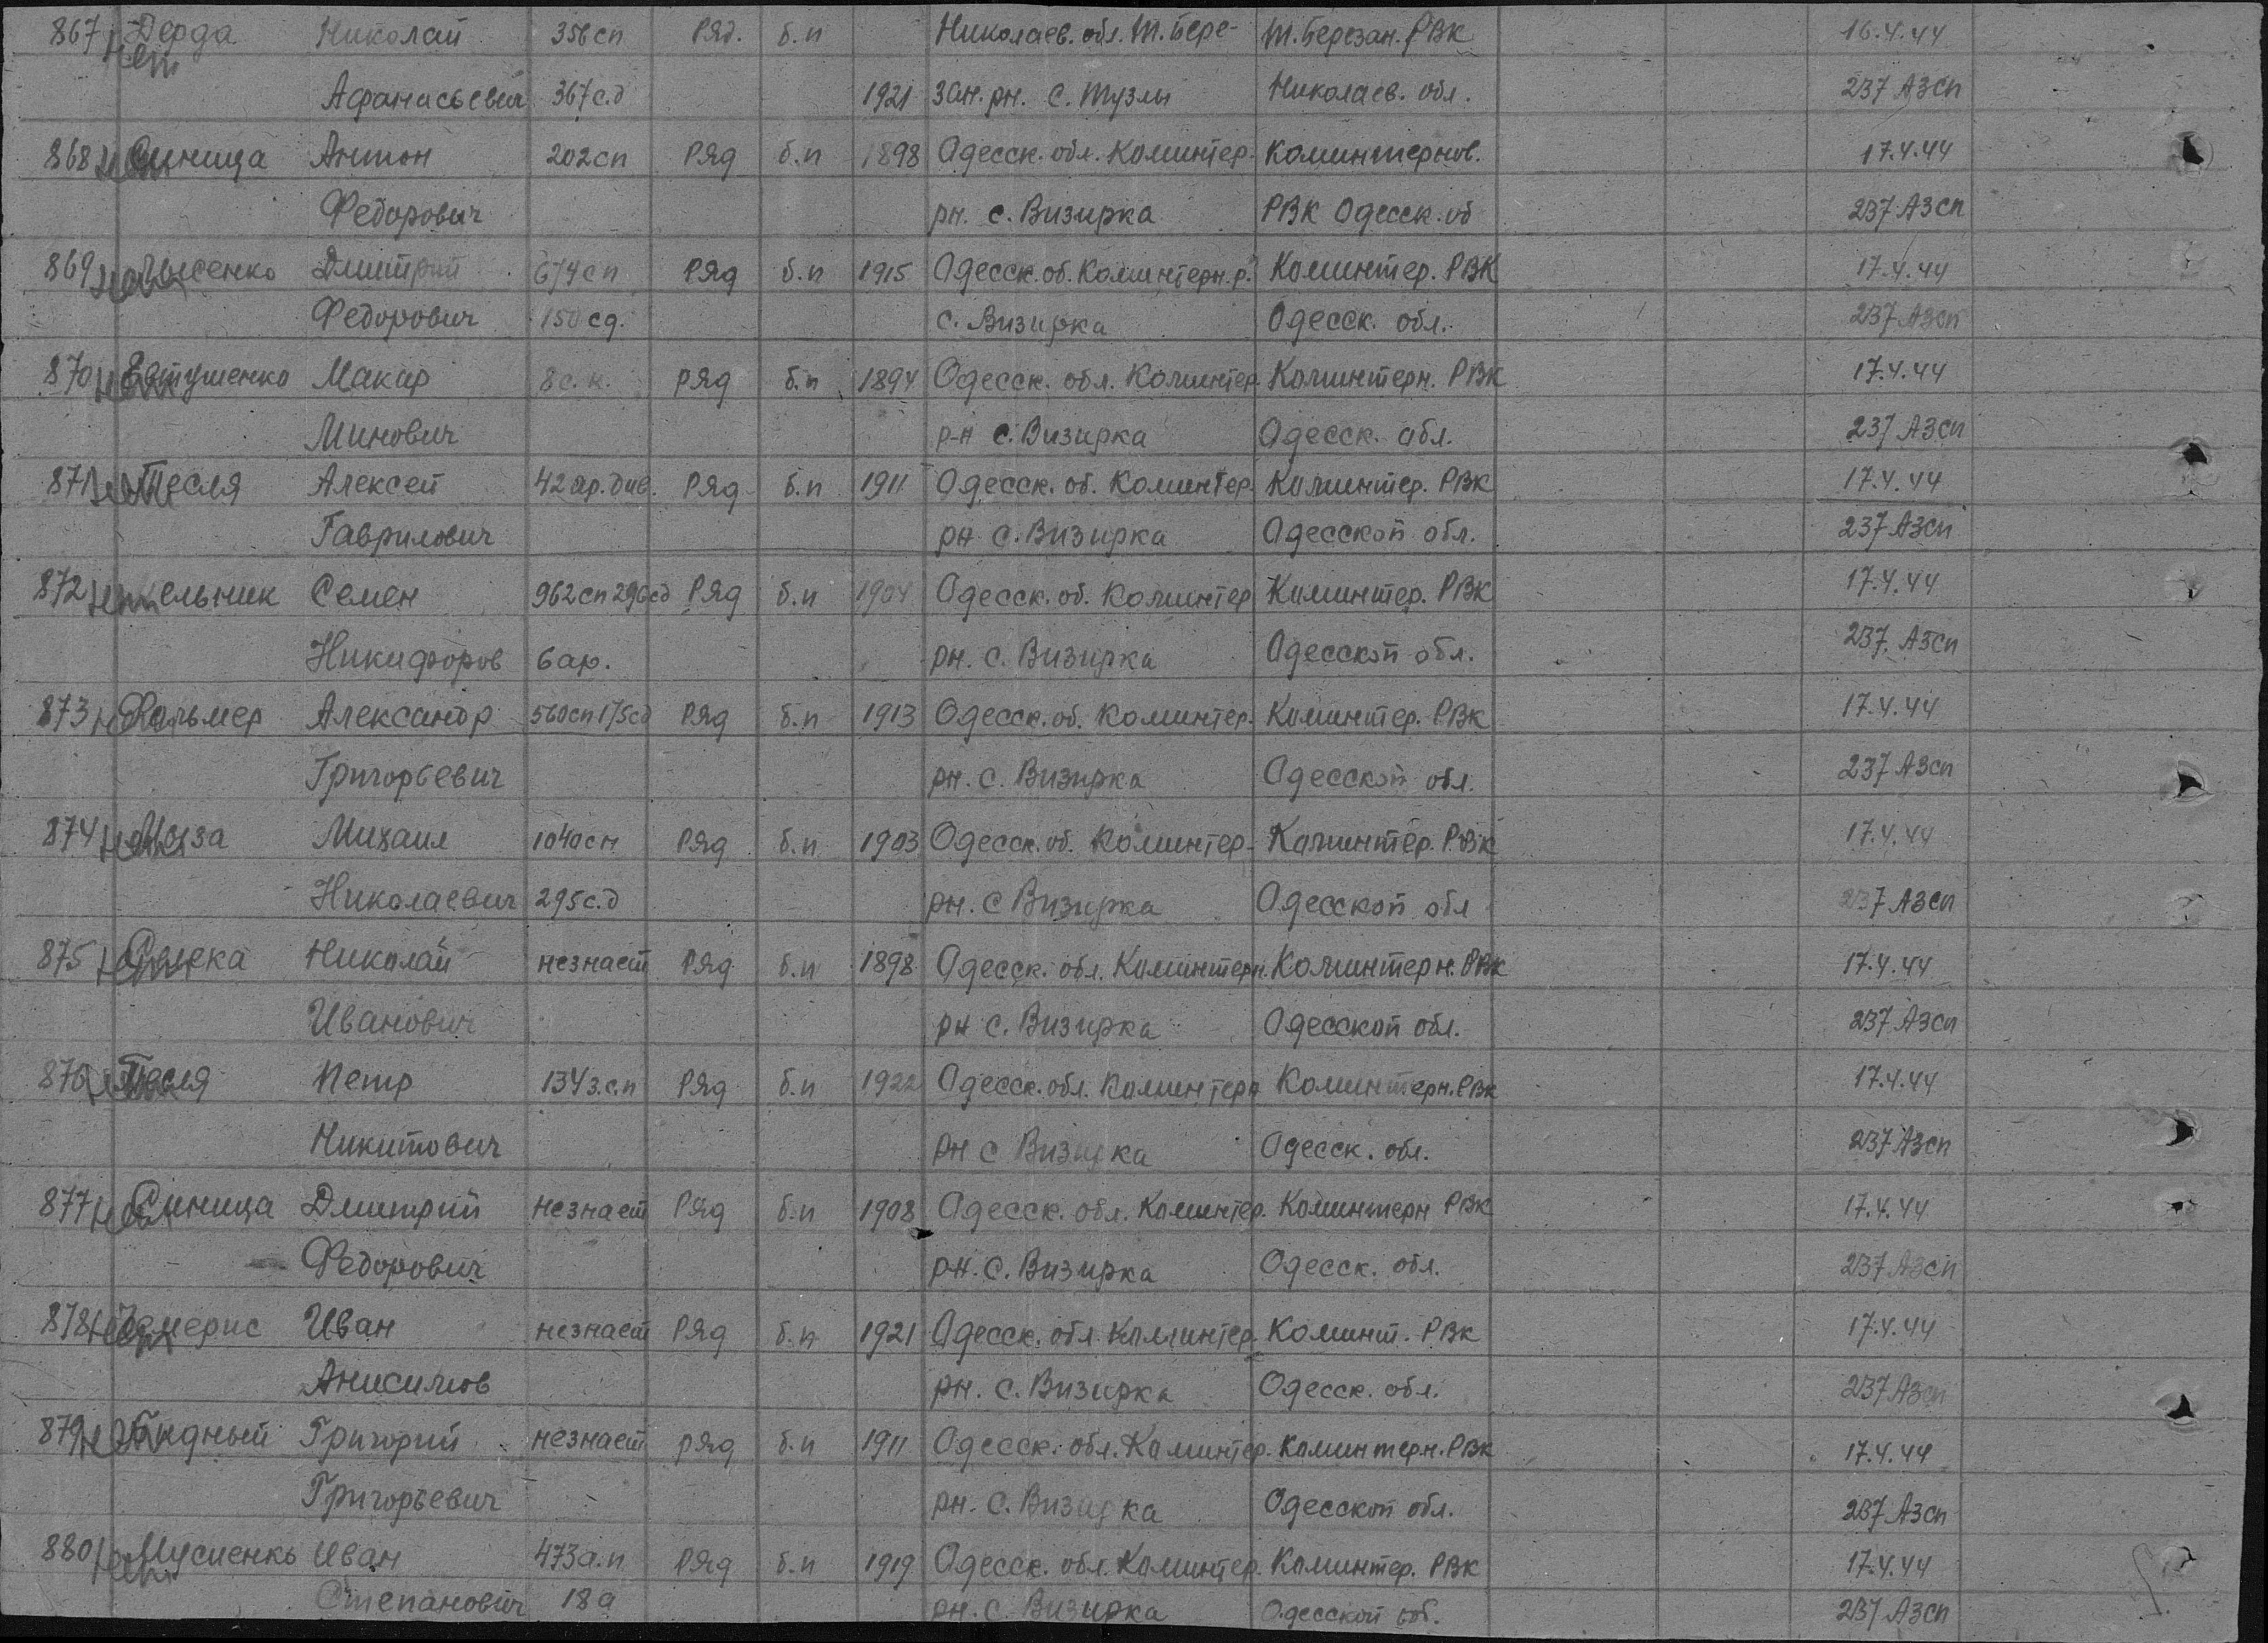 867 Дерда Николай 356сп Ряд. б.п Николаев. обл. Т. Бере- Т. Березан. РВК 16.4.44
нет Афанасьевич 367с.д 1921 зан. рн. с. Тузлы Николаев. обл. 237 АЗСП
868 нет Синица Антон 202сп Ряд б.п 1898 Одесск. обл. Коминтер. Коминтернов. 17.4.44
Федорович рн. с. Визирка РВК Одесск. об 237 АЗСП
869 Дмитрий 674сп Ряд б.п 1915 Одесск. об. Коминтерн. р. Коминтер. РВК 17.4.44
Федорович 150сд. с. Визирка Одесск. обл. 237 АЗСП
870 нет Евтушенко Макар 8с.к. ряд б.п 1894 Одесск. обл. Коминтер. Коминтерн. РВК 17.4.44
Минович р-н с. Визирка Одесск. обл. 237 АЗСП
871 нет Тесля Алексей 42 ар. див. Ряд б.п 1911 Одесск. об. Коминтер. Коминтер. РВК 17.4.44
Гаврилович рн с. Визирка Одесской обл. 237 АЗСП
872 нет Мельник Семен 962сп 296сд Ряд б.п 1904 Одесск. об. Коминтер Коминтер. РВК 17.4.44
Никифоров 6ар. рн. с. Визирка Одесской обл. 237. АЗСП
873 нет Александр 560сп 175сд Ряд б.п 1913 Одесск. об. Коминтер. Коминтер. РВК 17.4.44
Григорьевич рн. с. Визирка Одесской обл. 237 АЗСП
874 нет Михаил 1040сп Ряд б.п 1903 Одесск. об. Коминтер- Коминтер. РВК 17.4.44
Николаевич 295с.д рн. с Визирка Одесской обл 237 АЗСП
875 нет Николай незнает Ряд б.п 1898 Одесск. обл. Коминтерн. Коминтерн. РВК 17.4.44
Иванович рн с. Визирка Одесской обл. 237 АЗСП
876 нет Тесля Петр 1343.с.п Ряд б.п 1922 Одесск. обл. Коминтерн Коминтерн. РВК 17.4.44
Никитович рн с Визирка Одесск. обл. 237 АЗСП
877 нет Синица Дмитрий незнает Ряд б.п 1908 Одесск. обл. Коминтер. Коминтерн РВК 17.4.44
Федорович рн. с. Визирка Одесск. обл. 237 АЗСП
878 нет Чемерис Иван незнает Ряд б.п 1921 Одесск. обл. Коминтер. Коминт. РВК 17.4.44
Анисимов рн. с. Визирка Одесск. обл. 237 АЗСП
879 нет Григорий незнает ряд б.п 1911 Одесск. обл. Коминтер. Коминтерн. РВК 17.4.44
Григорьевич рн. с. Визирка Одесской обл. 237 АЗСП
880 нет Мусиенко Иван 473а.п Ряд б.п 1919 Одесск. обл. Коминтер. Коминтер. РВК 17.4.44
Степанович 18а рн. с. Визирка Одесской об. 237 АЗСП